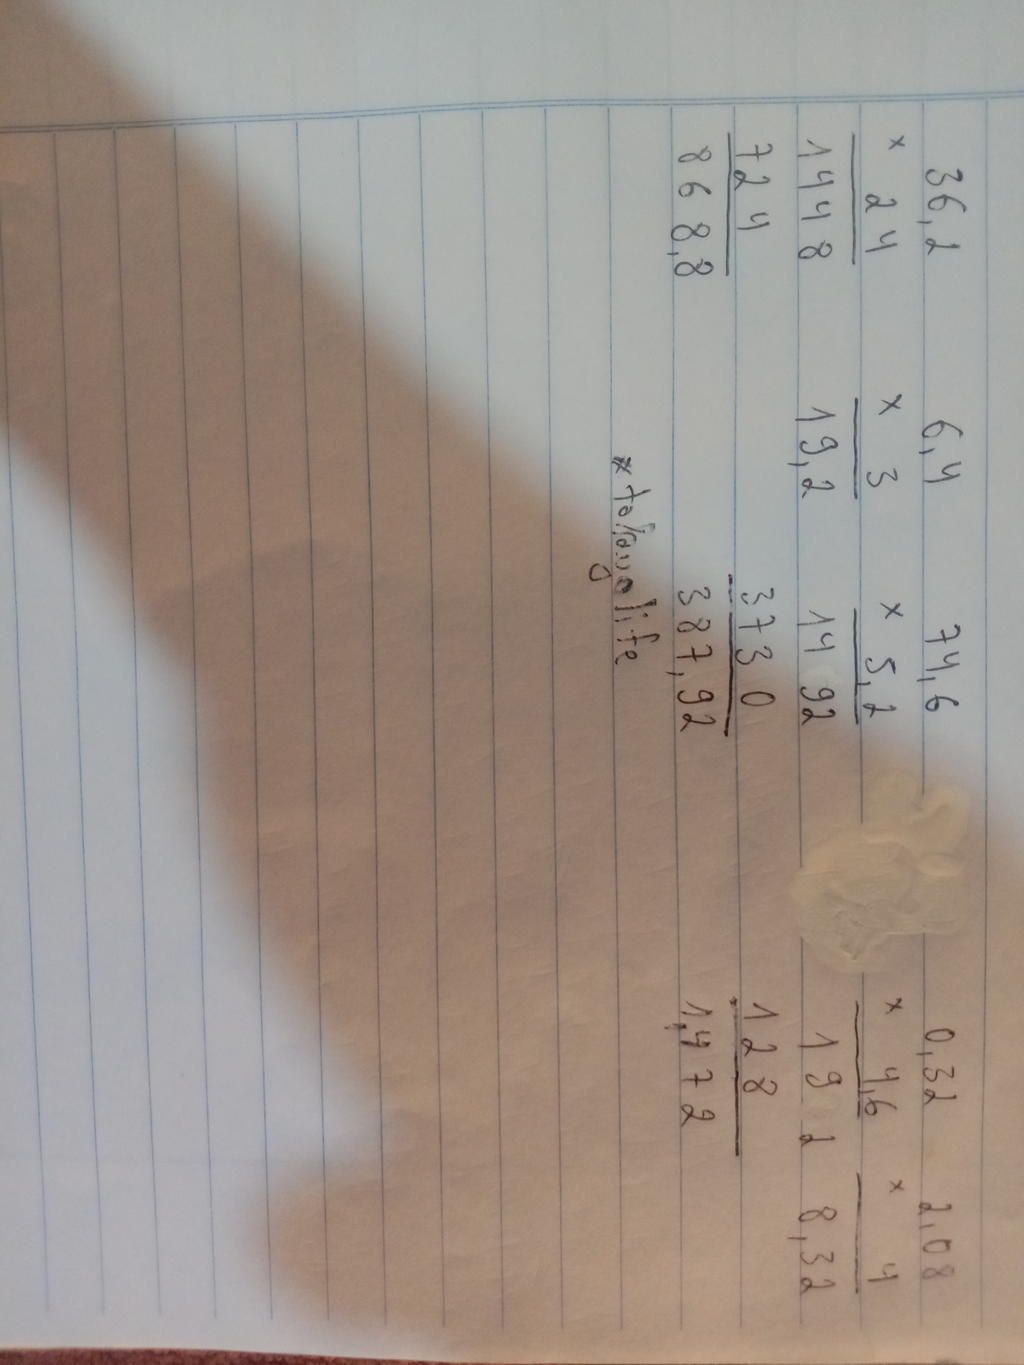 36,2 6,4 74,6 0,32 2,08
× 24 × 3 × 5,2 × 4,6 × 4
1448 19,2 1492 192 8,32
724 3730 128
868,8 387,92 1,472